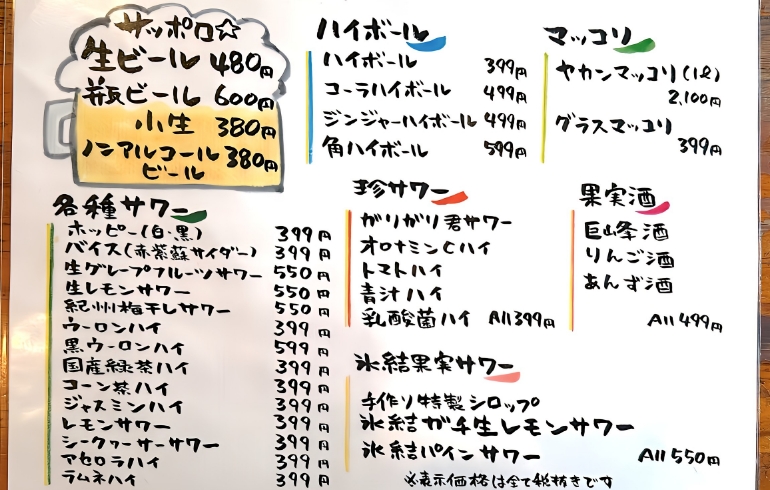 サッポロ☆
生ビール 480円
瓶ビール 600円
小生 380円
ノンアルコールビール 380円
ハイボール
ハイボール 399円
コーラハイボール 499円
ジンジャーハイボール 499円
角ハイボール 599円
マッコリ
ヤカンマッコリ(1ℓ)
2,100円
グラスマッコリ
399円
各種サワー
ホッピー(白・黒) 399円
バイス(赤紫蘇サイダー) 399円
生グレープフルーツサワー 550円
生レモンサワー 550円
紀州梅干しサワー 550円
ウーロンハイ 399円
黒ウーロンハイ 599円
国産緑茶ハイ 399円
コーン茶ハイ 399円
ジャスミンハイ 399円
レモンサワー 399円
シークァーサーサワー 399円
アセロラハイ 399円
ラムネハイ 399円
珍サワー
ガリガリ君サワー
オロナミンCハイ
トマトハイ
青汁ハイ
乳酸菌ハイ All399円
果実酒
巨峰酒
りんご酒
あんず酒
All 499円
氷結果実サワー
手作り特製シロップ
氷結ガチ生レモンサワー
氷結パインサワー All 550円
※表示価格は全て税抜きです